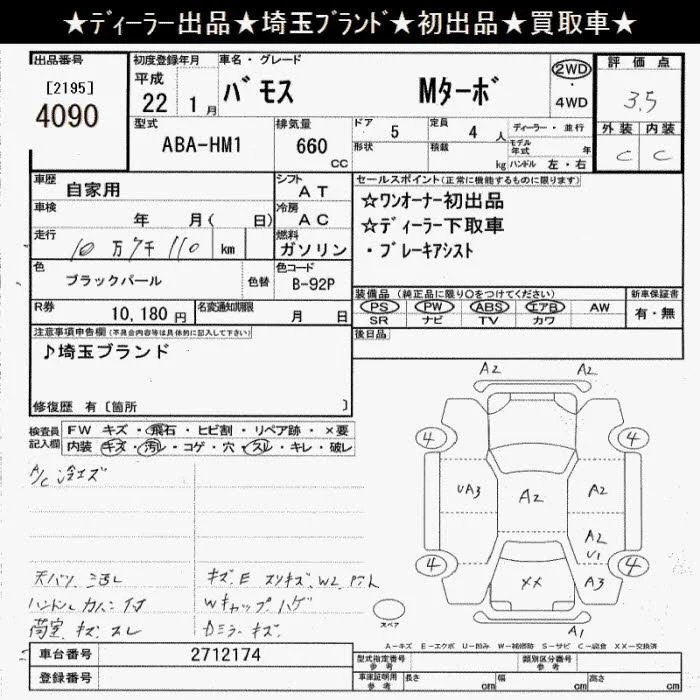 ★ディーラー出品★埼玉ブランド★初出品★買取車★
出品番号
[2195]
4090
初度登録年月
平成
22 1月
車名・グレード
バモス Mターボ
2WD
・
4WD
評価点
3.5
外装 内装
C C
型式
ABA-HM1
排気量
660
CC
ドア 5
形状
定員 4 人
積載 kg
ディーラー・並行
モデル年式 年
ハンドル 左・右
車歴 自家用
シフト
AT
車検 年 月( 日)
冷房
AC
走行 10万7千110 km
燃料
ガソリン
色
ブラックパール
色替
色コード
B-92P
R券 10,180円
名変通知期限 月 日
セールスポイント(正常に機能するものに限ります)
☆ワンオーナー初出品
☆ディーラー下取車
・ブレーキアシスト
装備品(純正品に限り○をつけてください)
PS PW ABS エアB AW
SR ナビ TV カワ
新車保証書
有・無
後日品
注意事項申告欄(不具合内容等は具体的に記入して下さい)
♪埼玉ブランド
修復歴 有〔箇所 〕
検査員記入欄
FW キズ・飛石・ヒビ割・リペア跡・×要
内装・キズ・汚レ・コゲ・穴・スレ・キレ・破レ
A/C 冷エズ
天バリ ヨゴレ
ハンドルカバー付
荷室 キズ スレ
キズ、E スリキズ、W2
Wキャップ ハゲ
Dミラー キズ
A2 A2
4 4
UA3 A2 A2
A2
U1
4 4
XX A3
A1
スペア
A-キズ E-エクボ U-凹み W-補修跡 S-サビ C-腐食 XX-交換済
車台番号 2712174
登録番号
型式指定番号 参考
類別区分番号 参考
車庫証明用 参考
長さ cm
幅 cm
高さ cm